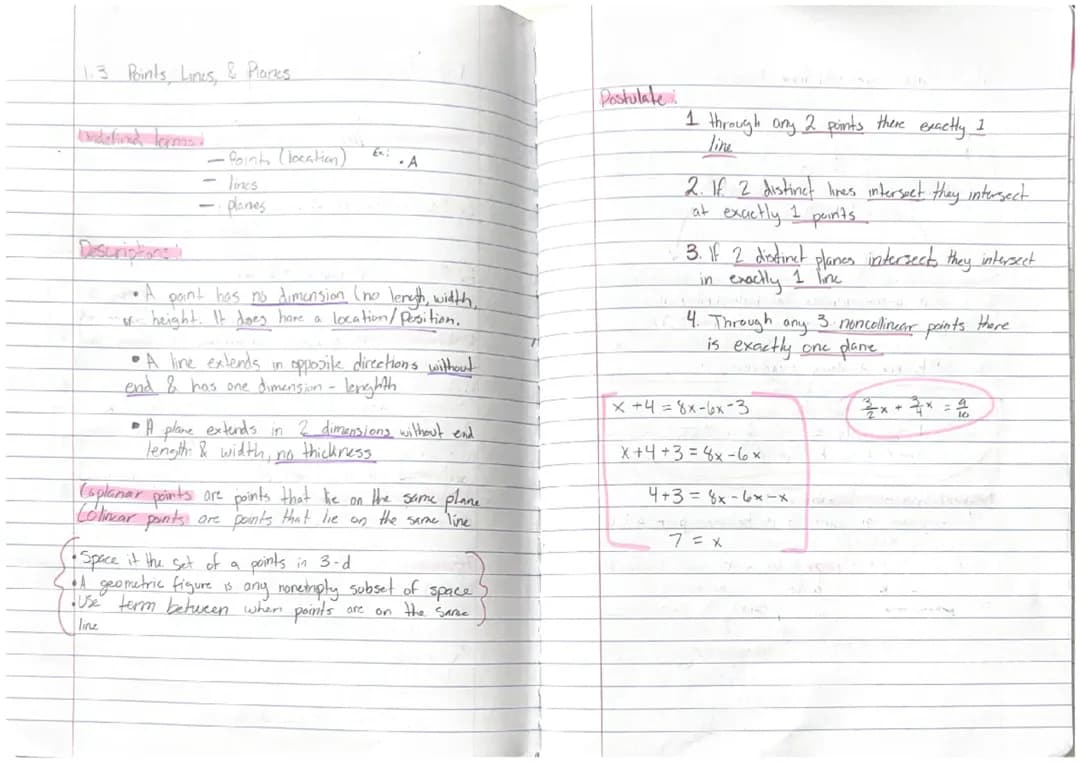 1.3 Points, Lines, & Planes
Undefined terms:
— Points (location) Ex: . A
— lines
— planes
Descriptions:
• A point has no dimension (no length, width,
or height. It does have a location/Position.
• A line extends in opposite directions without
end & has one dimension - lenghth
• A plane extends in 2 dimensions without end
length & width, no thickness
Coplanar points are points that lie on the same plane
Colinear points are points that lie on the same line
• Space it the set of a points in 3-d
• A geometric figure is any nonemply subset of space
• Use term between when points are on the same
line
Postulate:
1 through any 2 points there exactly 1
line
2. If 2 distinct lines intersect they intersect
at exactly 1 points
3. If 2 distinct planes intersects they intersect
in exactly 1 line
4. Through any 3 noncollinear points there
is exactly one plane
x + 4 = 8x - 6x - 3
x + 4 + 3 = 8x - 6x
4 + 3 = 8x - 6x - x
7 = x
3/2 x + 3/4 x = 9/10